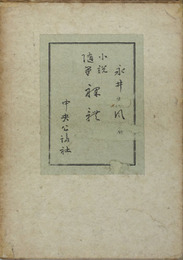 永井荷風 著
小説
随筆
裸體
中央公論社